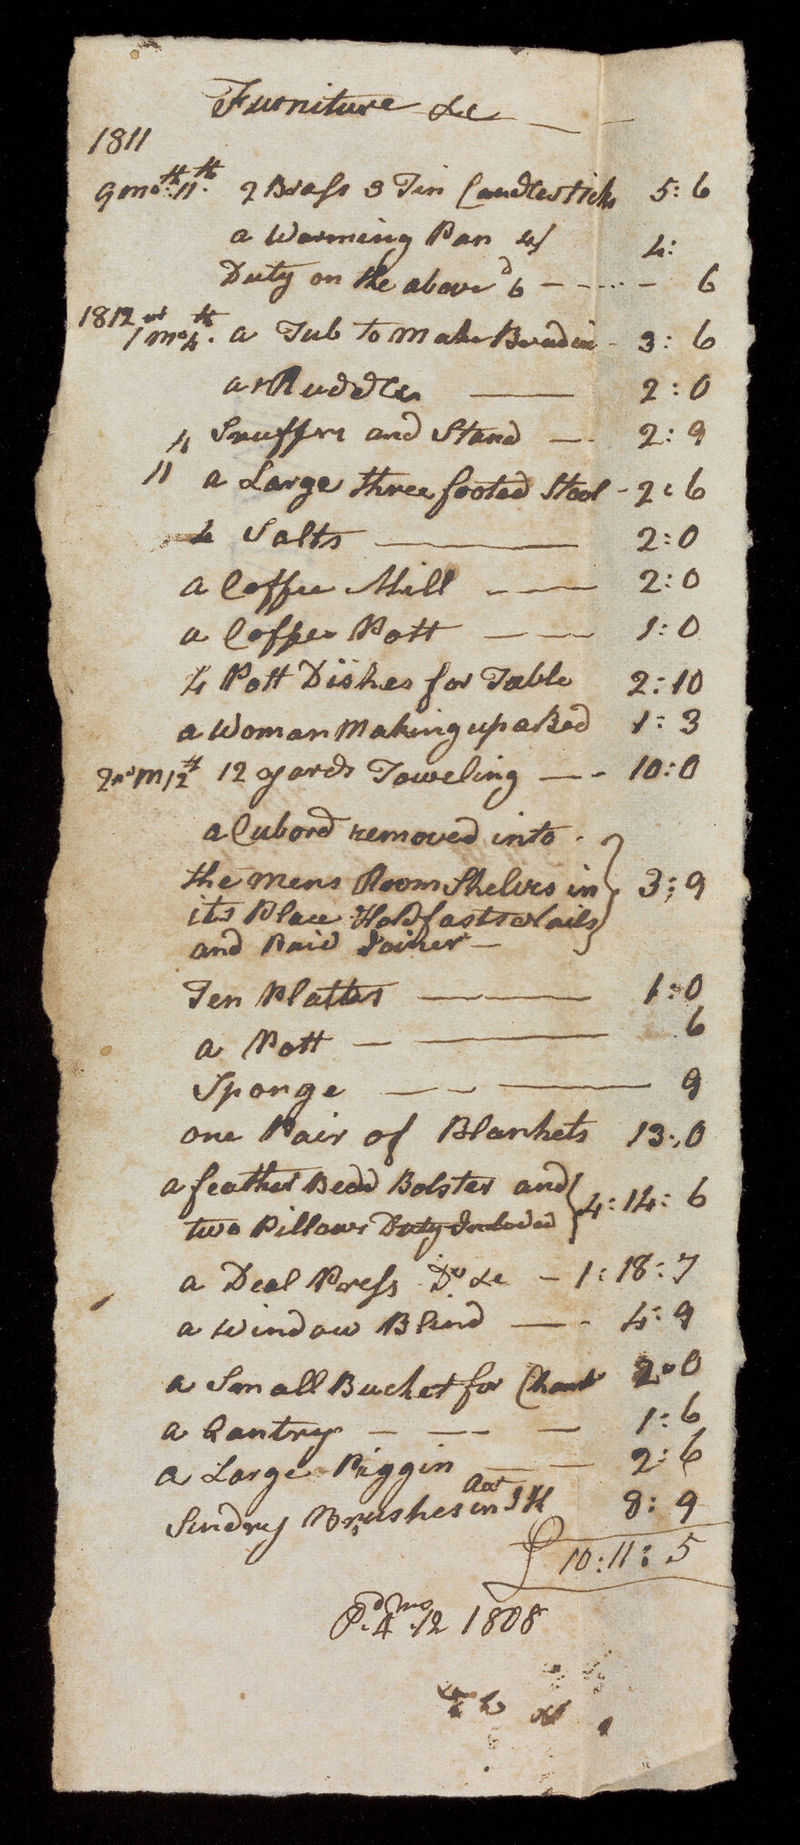 Furniture &c
1811
9 mo: th 11th. 2 Brass 3 Tin Candlesticks 5: 6
a Warming Pan 4/ 4:
Duty on the above 6d 6
1812
1st mo 4th. a Tub to make Bread in 3: 6
a Ruddle 2: 0
4 Snuffers and Stand 2: 9
11 a Large three footed Stool 2: 6
4 Salts 2: 0
a Coffee Mill 2: 0
a Coffee Pott 1: 0
4 Pott Dishes for Table 2: 10
a Woman Making up a Bed 1: 3
2nd M 12th 12 yards Toweling 10: 0
a Cubord removed into
the mens Room Shelves in
its Place Holdfasts Nails 3: 9
and Paid Joiner
Ten Plattes 1: 0
a Pott 6
Sponge 9
one Pair of Blankets 13: 0
a feather Bedd Bolster and
two Pillows Duty Included 4: 14: 6
a Deal Press Do &c 1: 18: 7
a Window Blind 4: 9
a Small Bucket for 2: 0
a Gantry 1: 6
a Large Piggin 2: 6
Sundry Brushes in 8: 9
£ 10: 11: 5
Pd. 4 mo. 12 1808